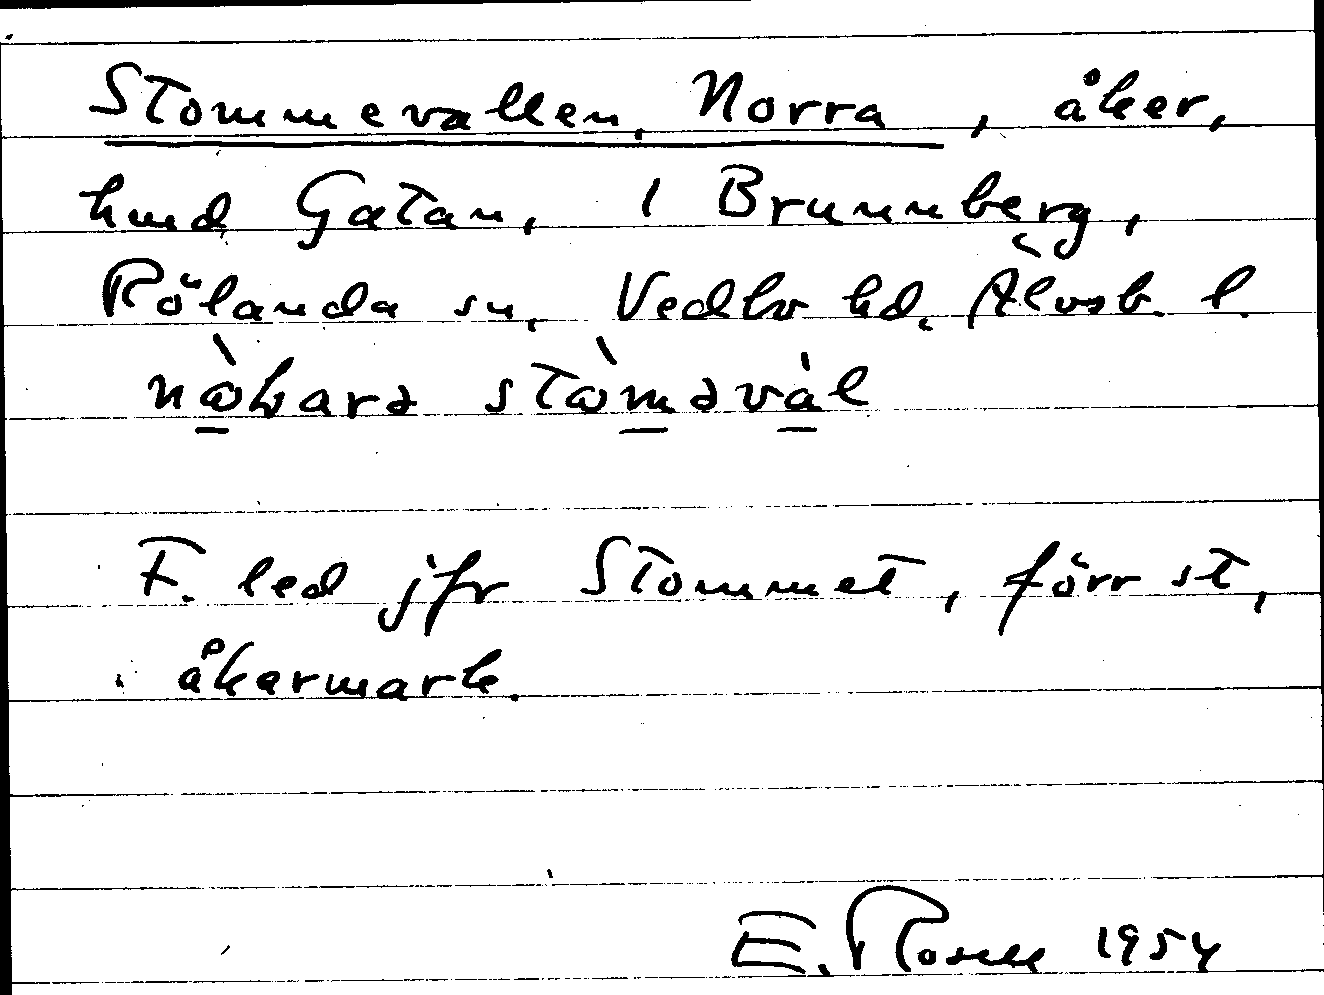 Stommevallen, Norra, åker,
hmd Gatan, 1 Brunnberg,
Rölanda sn, Vedbo hd, Älvsb. l.
F. led jfr Stommet, förr st,
åkermark.
E. Rosell 1954